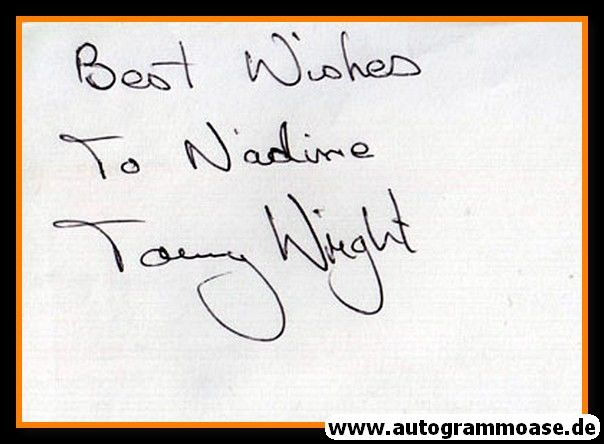 Best Wishes
To Nadine
Tommy Wright
www.autogrammoase.de